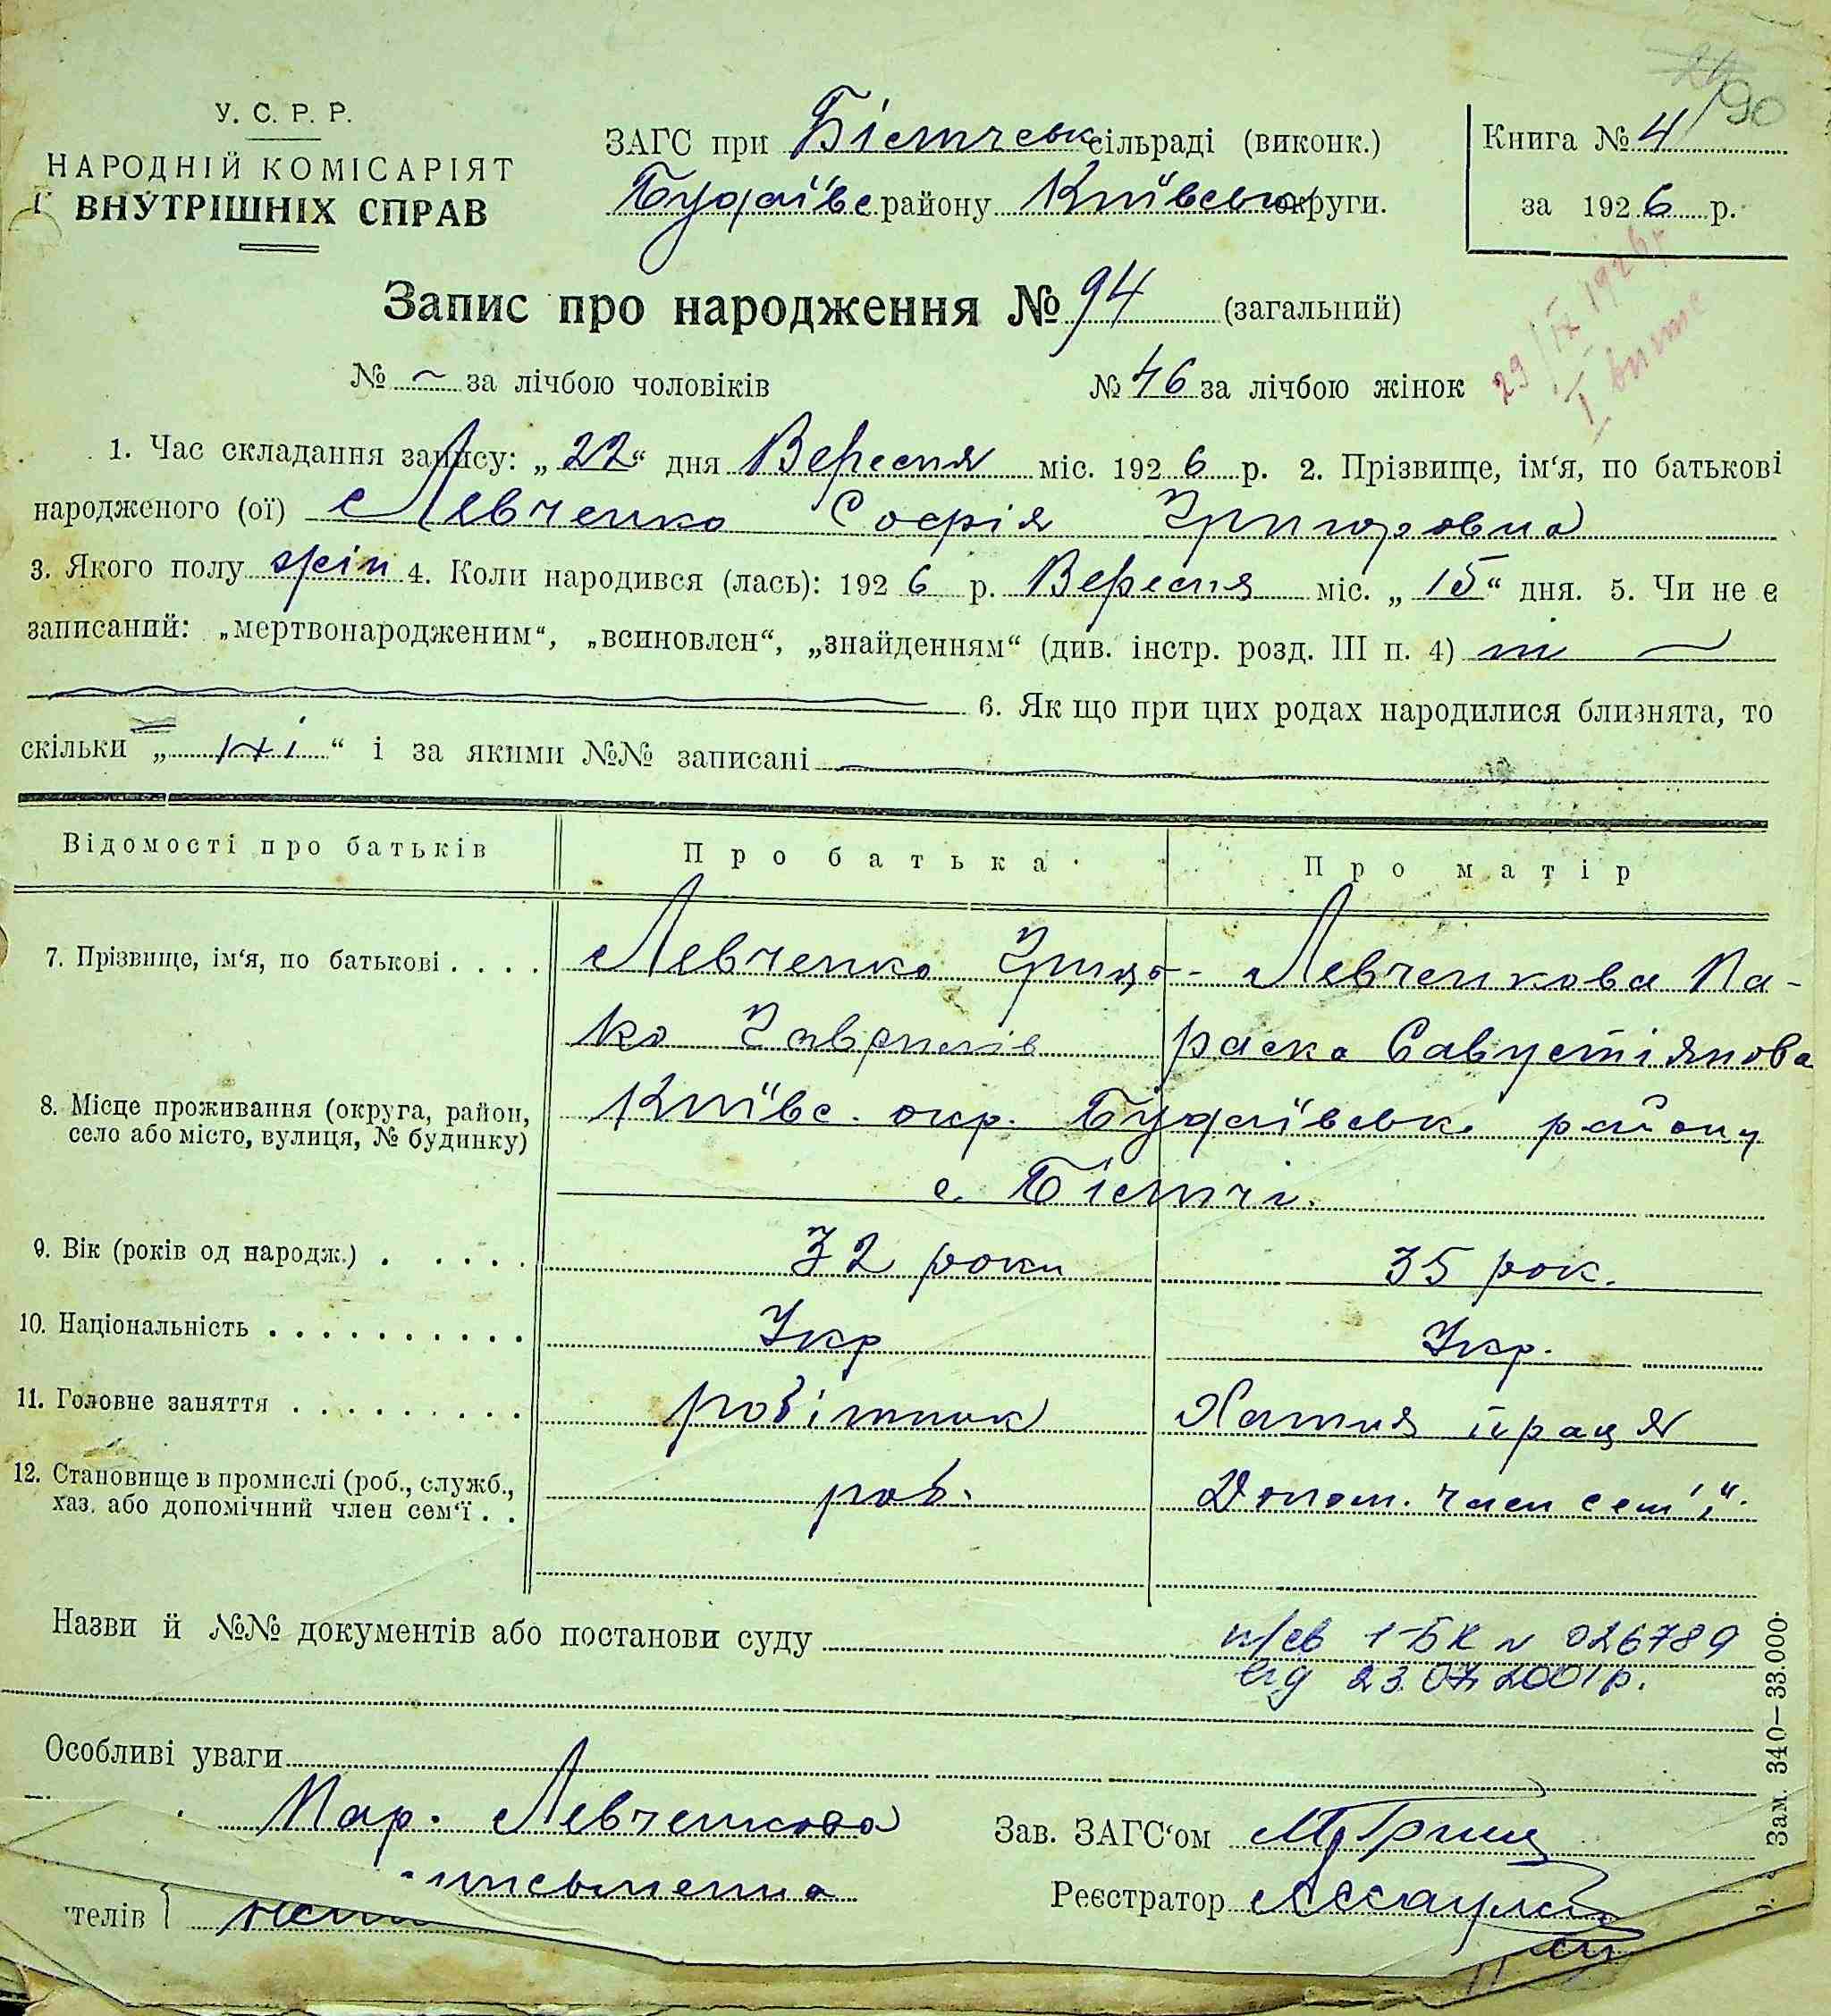 90
У. С. Р. Р.
НАРОДНІЙ КОМІСАРІЯТ
ВНУТРІШНІХ СПРАВ
ЗАГС при Білмческ сільраді (виконк.)
Будаївс. району Київськ округи.
Книга № 4
за 1926 р.
Запис про народження № 94 (загальний)
№ ~ за лічбою чоловіків № 46 за лічбою жінок
29/IX 1926 р
1. Час складання запису: „22“ дня Вересня міс. 1926 р. 2. Прізвище, ім‘я, по батькові
народженого (ої) Левченко Софія Григоровна
3. Якого полу жін 4. Коли народився (лась): 1926 р. Вересня міс. „15“ дня. 5. Чи не є
записаний: „мертвонародженим“, „всиновлен“, „знайденням“ (див. інстр. розд. III п. 4) ні
6. Як що при цих родах народилися близнята, то
скільки „ні“ і за якими №№ записані
Відомості про батьків Про батька Про матір
7. Прізвище, ім‘я, по батькові . . . . Левченко Григо- Левченкова Па-
ко Гаврилів раска Савустіянова
8. Місце проживання (округа, район, Київс. окр. Будаївськ. району
село або місто, вулиця, № будинку)
с.
9. Вік (років од народж.) . . . . . 32 роки 35 рок.
10. Національність . . . . . . . . . . Укр Укр.
11. Головне заняття . . . . . . . . . робітник Хатня праця
12. Становище в промислі (роб., служб., роб. Допом. член сем‘ї.
хаз. або допомічний член сем‘ї . .
Назви й №№ документів або постанови суду п/св 1-БК № 026789
від 23.07.2001р.
Особливі уваги
Пар. Левченкова
Зав. ЗАГС‘ом
письменна
телів
Реєстратор
Зам. 340—33.000.